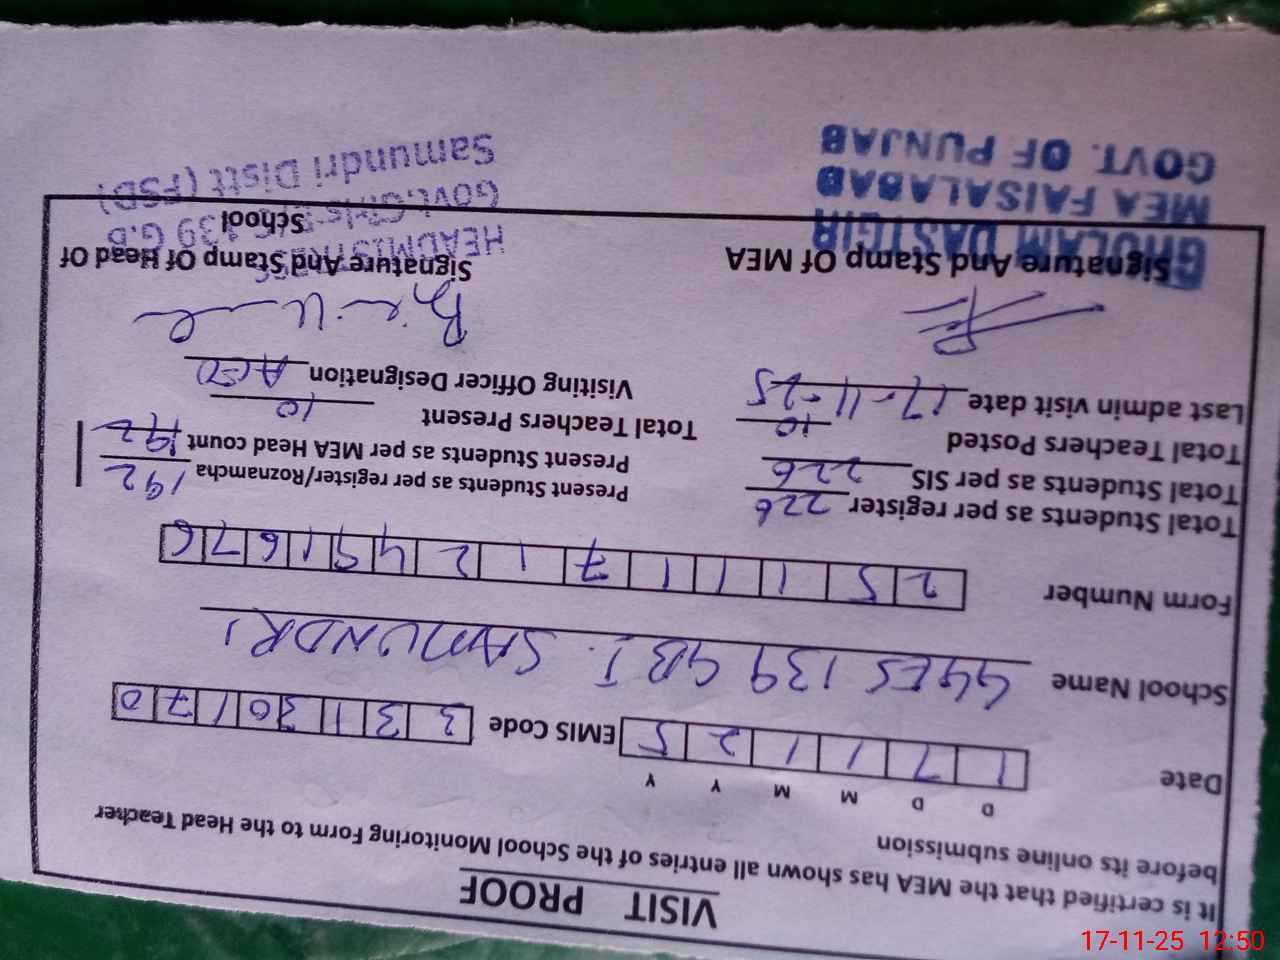 VISIT PROOF
It is certified that the MEA has shown all entries of the School Monitoring Form to the Head Teacher
before its online submission
D D M M Y Y
Date 1 7 1 1 2 5 EMIS Code 3 3 1 3 0 1 7 0
School Name GGES 139 GB I. SAMUNDRI
Form Number 2 5 1 1 1 7 1 2 4 9 1 6 7 6
Total Students as per register 226 Present Students as per register/Roznamcha 192
Total Students as per SIS 226 Present Students as per MEA Head count 192
Total Teachers Posted 10 Total Teachers Present 10
Last admin visit date 17-11-25 Visiting Officer Designation AEO
Signature And Stamp Of MEA Signature And Stamp Of Head Of
School
GHULAM DASTGIR
MEA FAISALABAD
GOVT. OF PUNJAB
HEADMISTRESS
Govt. Girls 139 G.B
Samundri Distt (FSD)
17-11-25 12:50